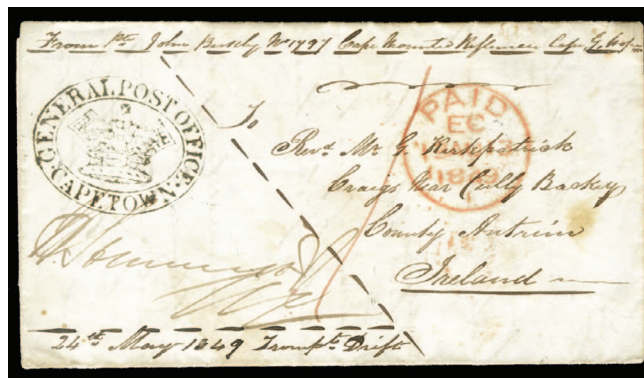 From Pte John Bussly No 1797 Cape Mounted Riflemen Cape G. Hope
GENERAL POST OFFICE
CAPETOWN
PAID
EC
1849
To
Revd Mr G. Kirkpatrick
Craigs Near Cully Backey
County Antrim
Ireland
24th May 1849 Trompts Drift